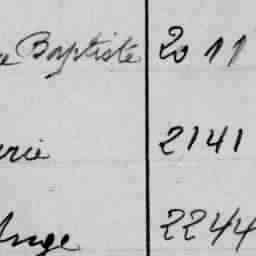 Baptiste 2011
rie 2141
Ange 2244